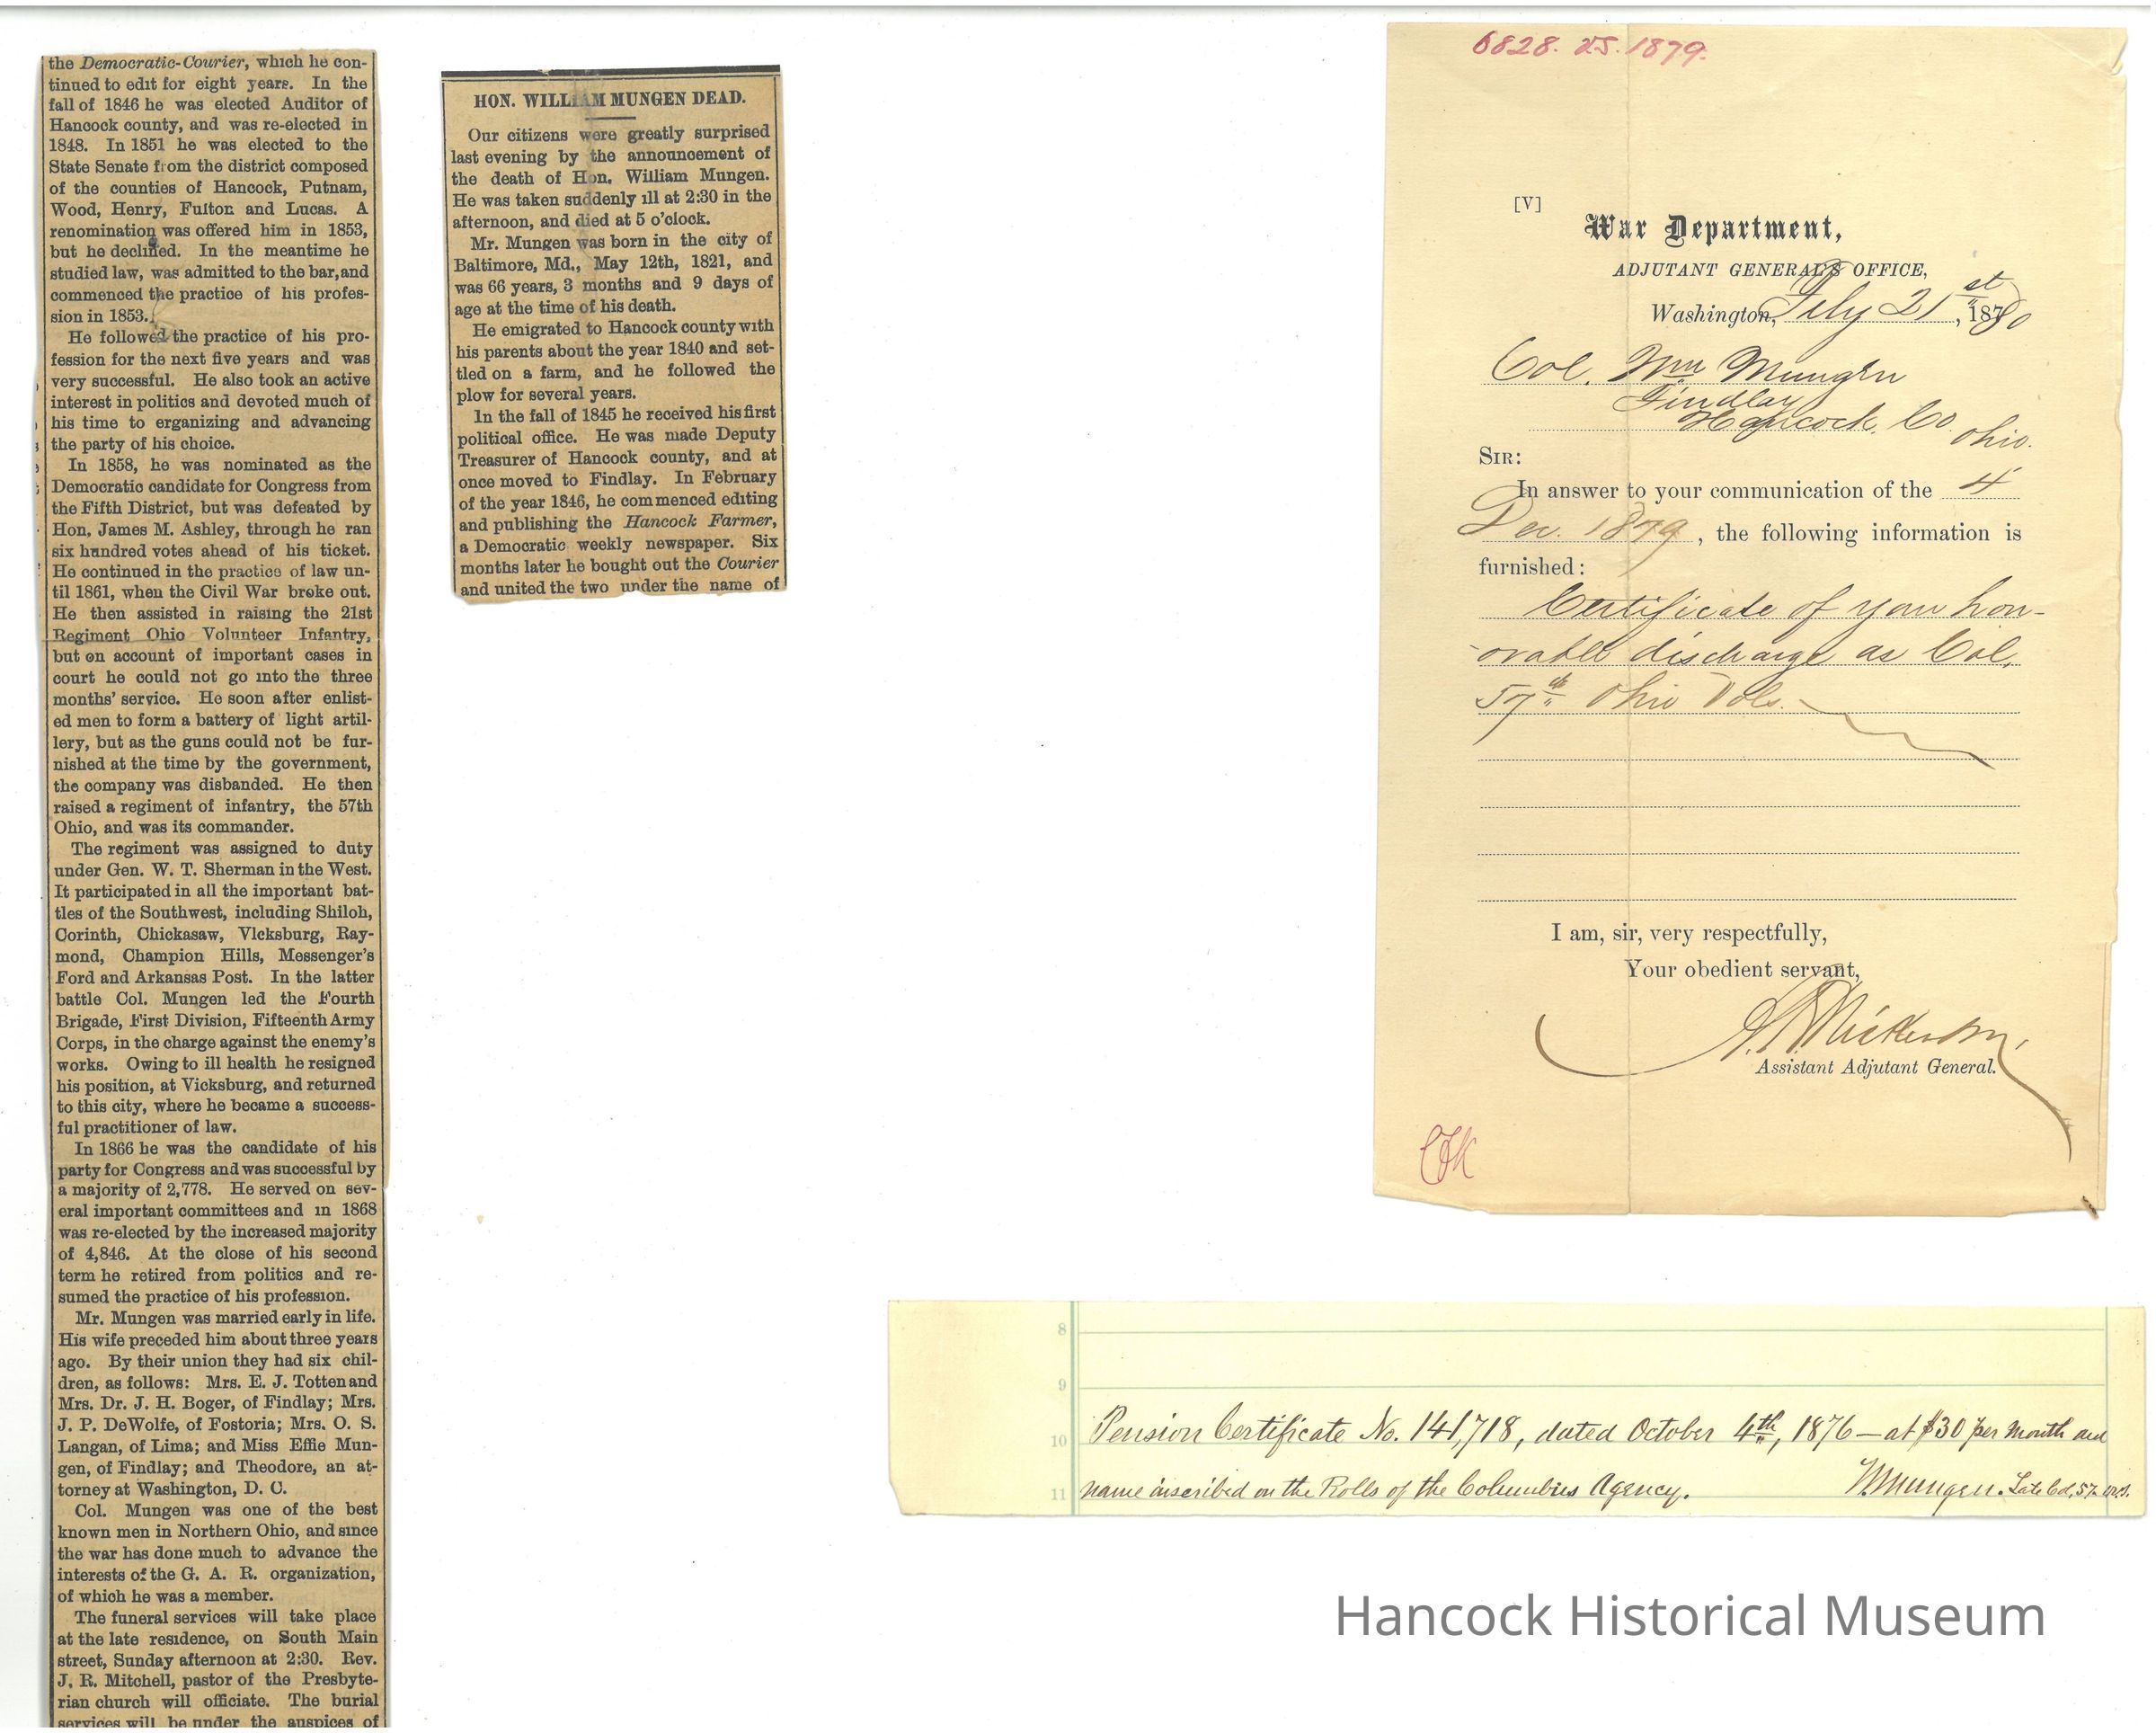 HON. WILLIAM MUNGEN DEAD.
Our citizens were greatly surprised
last evening by the announcement of
the death of Hon. William Mungen.
He was taken suddenly ill at 2:30 in the
afternoon, and died at 5 o'clock.
Mr. Mungen was born in the city of
Baltimore, Md., May 12th, 1821, and
was 66 years, 3 months and 9 days of
age at the time of his death.
He emigrated to Hancock county with
his parents about the year 1840 and set-
tled on a farm, and he followed the
plow for several years.
In the fall of 1845 he received his first
political office. He was made Deputy
Treasurer of Hancock county, and at
once moved to Findlay. In February
of the year 1846, he commenced editing
and publishing the Hancock Farmer,
a Democratic weekly newspaper. Six
months later he bought out the Courier
and united the two under the name of
the Democratic-Courier, which he con-
tinued to edit for eight years. In the
fall of 1846 he was elected Auditor of
Hancock county, and was re-elected in
1848. In 1851 he was elected to the
State Senate from the district composed
of the counties of Hancock, Putnam,
Wood, Henry, Fulton and Lucas. A
renomination was offered him in 1853,
but he declined. In the meantime he
studied law, was admitted to the bar, and
commenced the practice of his profes-
sion in 1853.
He followed the practice of his pro-
fession for the next five years and was
very successful. He also took an active
interest in politics and devoted much of
his time to erganizing and advancing
the party of his choice.
In 1858, he was nominated as the
Democratic candidate for Congress from
the Fifth District, but was defeated by
Hon, James M. Ashley, through he ran
six hundred votes ahead of his ticket.
He continued in the practice of law un-
til 1861, when the Civil War broke out.
He then assisted in raising the 21st
Regiment Ohio Volunteer Infantry,
but on account of important cases in
court he could not go into the three
months' service. He soon after enlist-
ed men to form a battery of light artil-
lery, but as the guns could not be fur-
nished at the time by the government,
the company was disbanded. He then
raised a regiment of infantry, the 57th
Ohio, and was its commander.
The regiment was assigned to duty
under Gen. W. T. Sherman in the West.
It participated in all the important bat-
tles of the Southwest, including Shiloh,
Corinth, Chickasaw, Vicksburg, Ray-
mond, Champion Hills, Messenger's
Ford and Arkansas Post. In the latter
battle Col. Mungen led the Fourth
Brigade, First Division, Fifteenth Army
Corps, in the charge against the enemy's
works. Owing to ill health he resigned
his position, at Vicksburg, and returned
to this city, where he became a success-
ful practitioner of law.
In 1866 he was the candidate of his
party for Congress and was successful by
a majority of 2,778. He served on sev-
eral important committees and in 1868
was re-elected by the increased majority
of 4,846. At the close of his second
term he retired from politics and re-
sumed the practice of his profession.
Mr. Mungen was married early in life.
His wife preceded him about three years
ago. By their union they had six chil-
dren, as follows: Mrs. E. J. Totten and
Mrs. Dr. J. H. Boger, of Findlay; Mrs.
J. P. DeWolfe, of Fostoria; Mrs. O. S.
Langan, of Lima; and Miss Effie Mun-
gen, of Findlay; and Theodore, an at-
torney at Washington, D. C.
Col. Mungen was one of the best
known men in Northern Ohio, and since
the war has done much to advance the
interests of the G. A. R. organization,
of which he was a member.
The funeral services will take place
at the late residence, on South Main
street, Sunday afternoon at 2:30. Rev.
J. R. Mitchell, pastor of the Presbyte-
rian church will officiate. The burial
services will be under the auspices of
6828. 1879.
[V]
War Department,
ADJUTANT GENERAL'S OFFICE,
Washington, 21st, 1880
Col. Wm Mungen
Findlay
Hancock Co Ohio.
SIR:
In answer to your communication of the 4
Dec. 1879, the following information is
furnished:
Certificate of your hon-
orable discharge as Col.
57th Ohio Vols.
I am, sir, very respectfully,
Your obedient servant,
Assistant Adjutant General.
8
9
10 Pension Certificate No. 141,718, dated October 4th, 1876 — at $30 per month and
11 name inscribed on the Rolls of the Columbus Agency. W. Mungen. Late Col, 57
Hancock Historical Museum